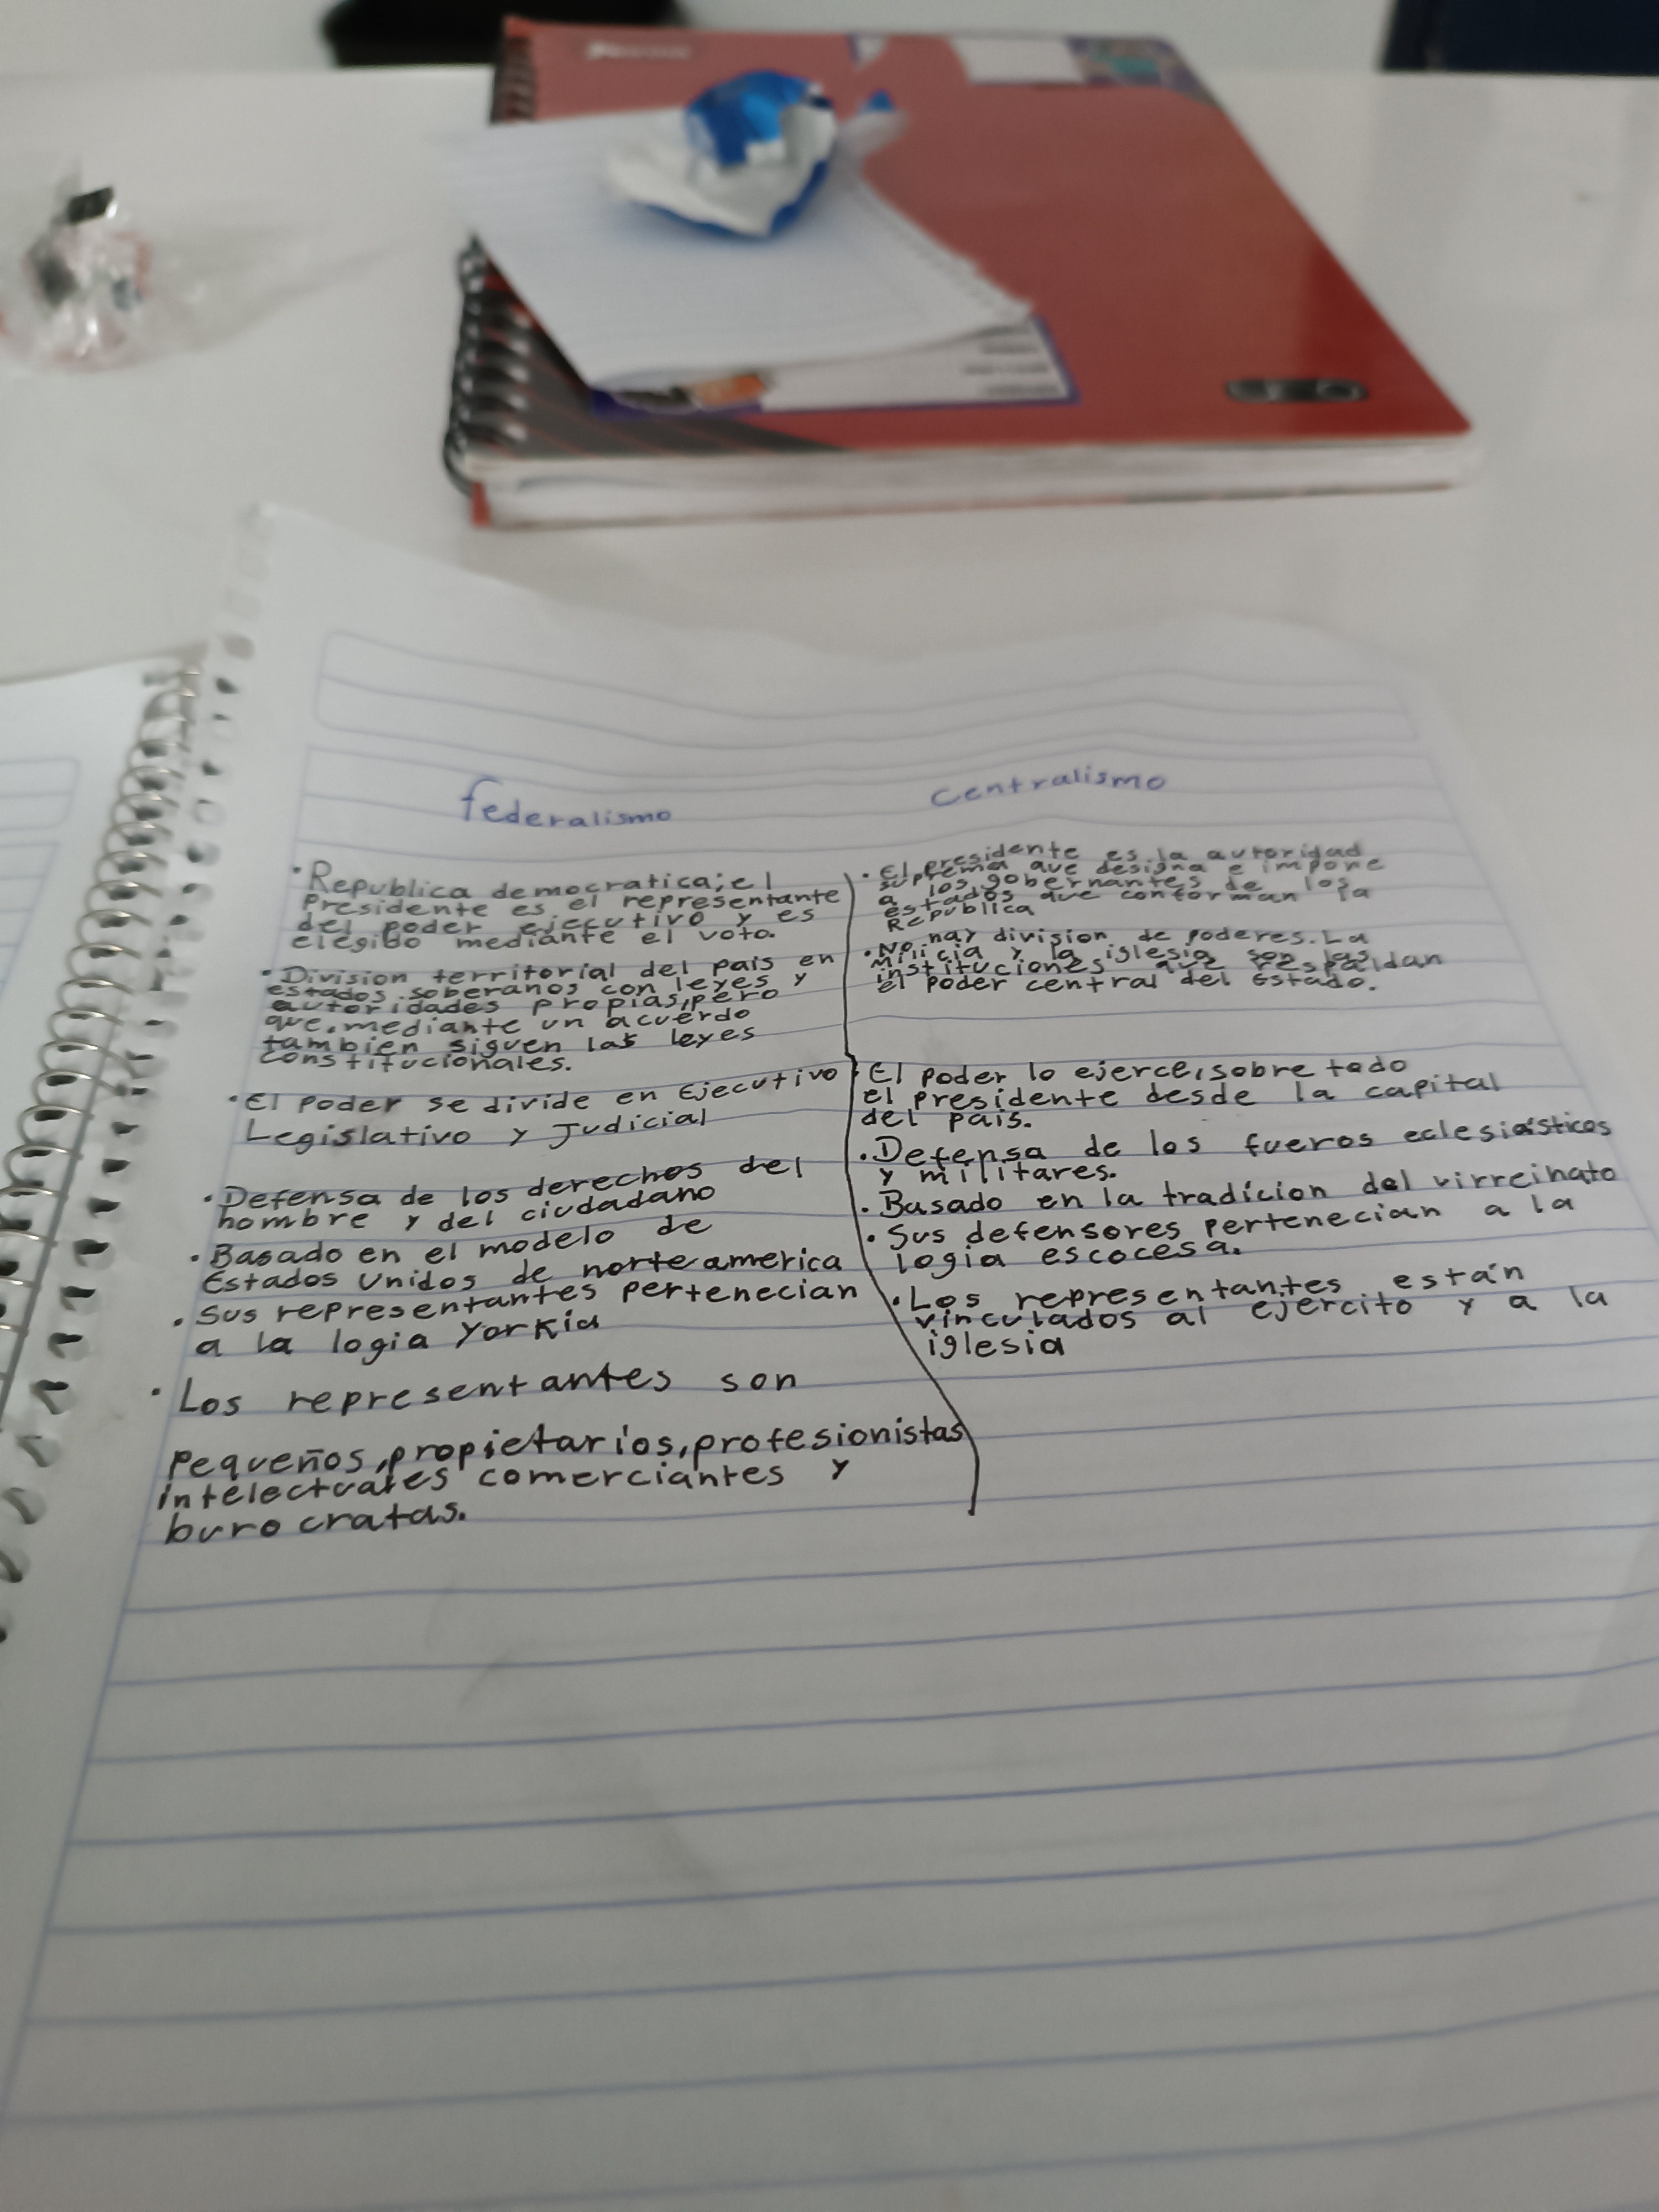 federalismo
• Republica democratica; el
Presidente es el representante
del poder ejecutivo y es
elegido mediante el voto.
• Division territorial del pais en
estados soberanos con leyes y
autoridades propias, pero
que, mediante un acuerdo
tambien siguen las leyes
constitucionales.
• El poder se divide en Ejecutivo
Legislativo y Judicial
• Defensa de los derechos del
hombre y del ciudadano
• Basado en el modelo de
Estados Unidos de norteamerica
• Sus representantes pertenecian
a la logia Yorkia
• Los representantes son
Pequeños, propietarios, profesionistas
intelectuales comerciantes y
buro cratas.
centralismo
• El presidente es la autoridad
suprema que designa e impone
a los gobernantes de los
estados que conforman la
Republica
• No hay division de poderes. La
Milicia y la iglesia son las
instituciones que respaldan
el poder central del Estado.
• El poder lo ejerce, sobre todo
el presidente desde la capital
del pais.
• Defensa de los fueros eclesiásticos
y militares.
• Basado en la tradicion del virreinato
• Sus defensores pertenecian a la
logia escocesa.
• Los representantes están
vinculados al ejercito y a la
iglesia